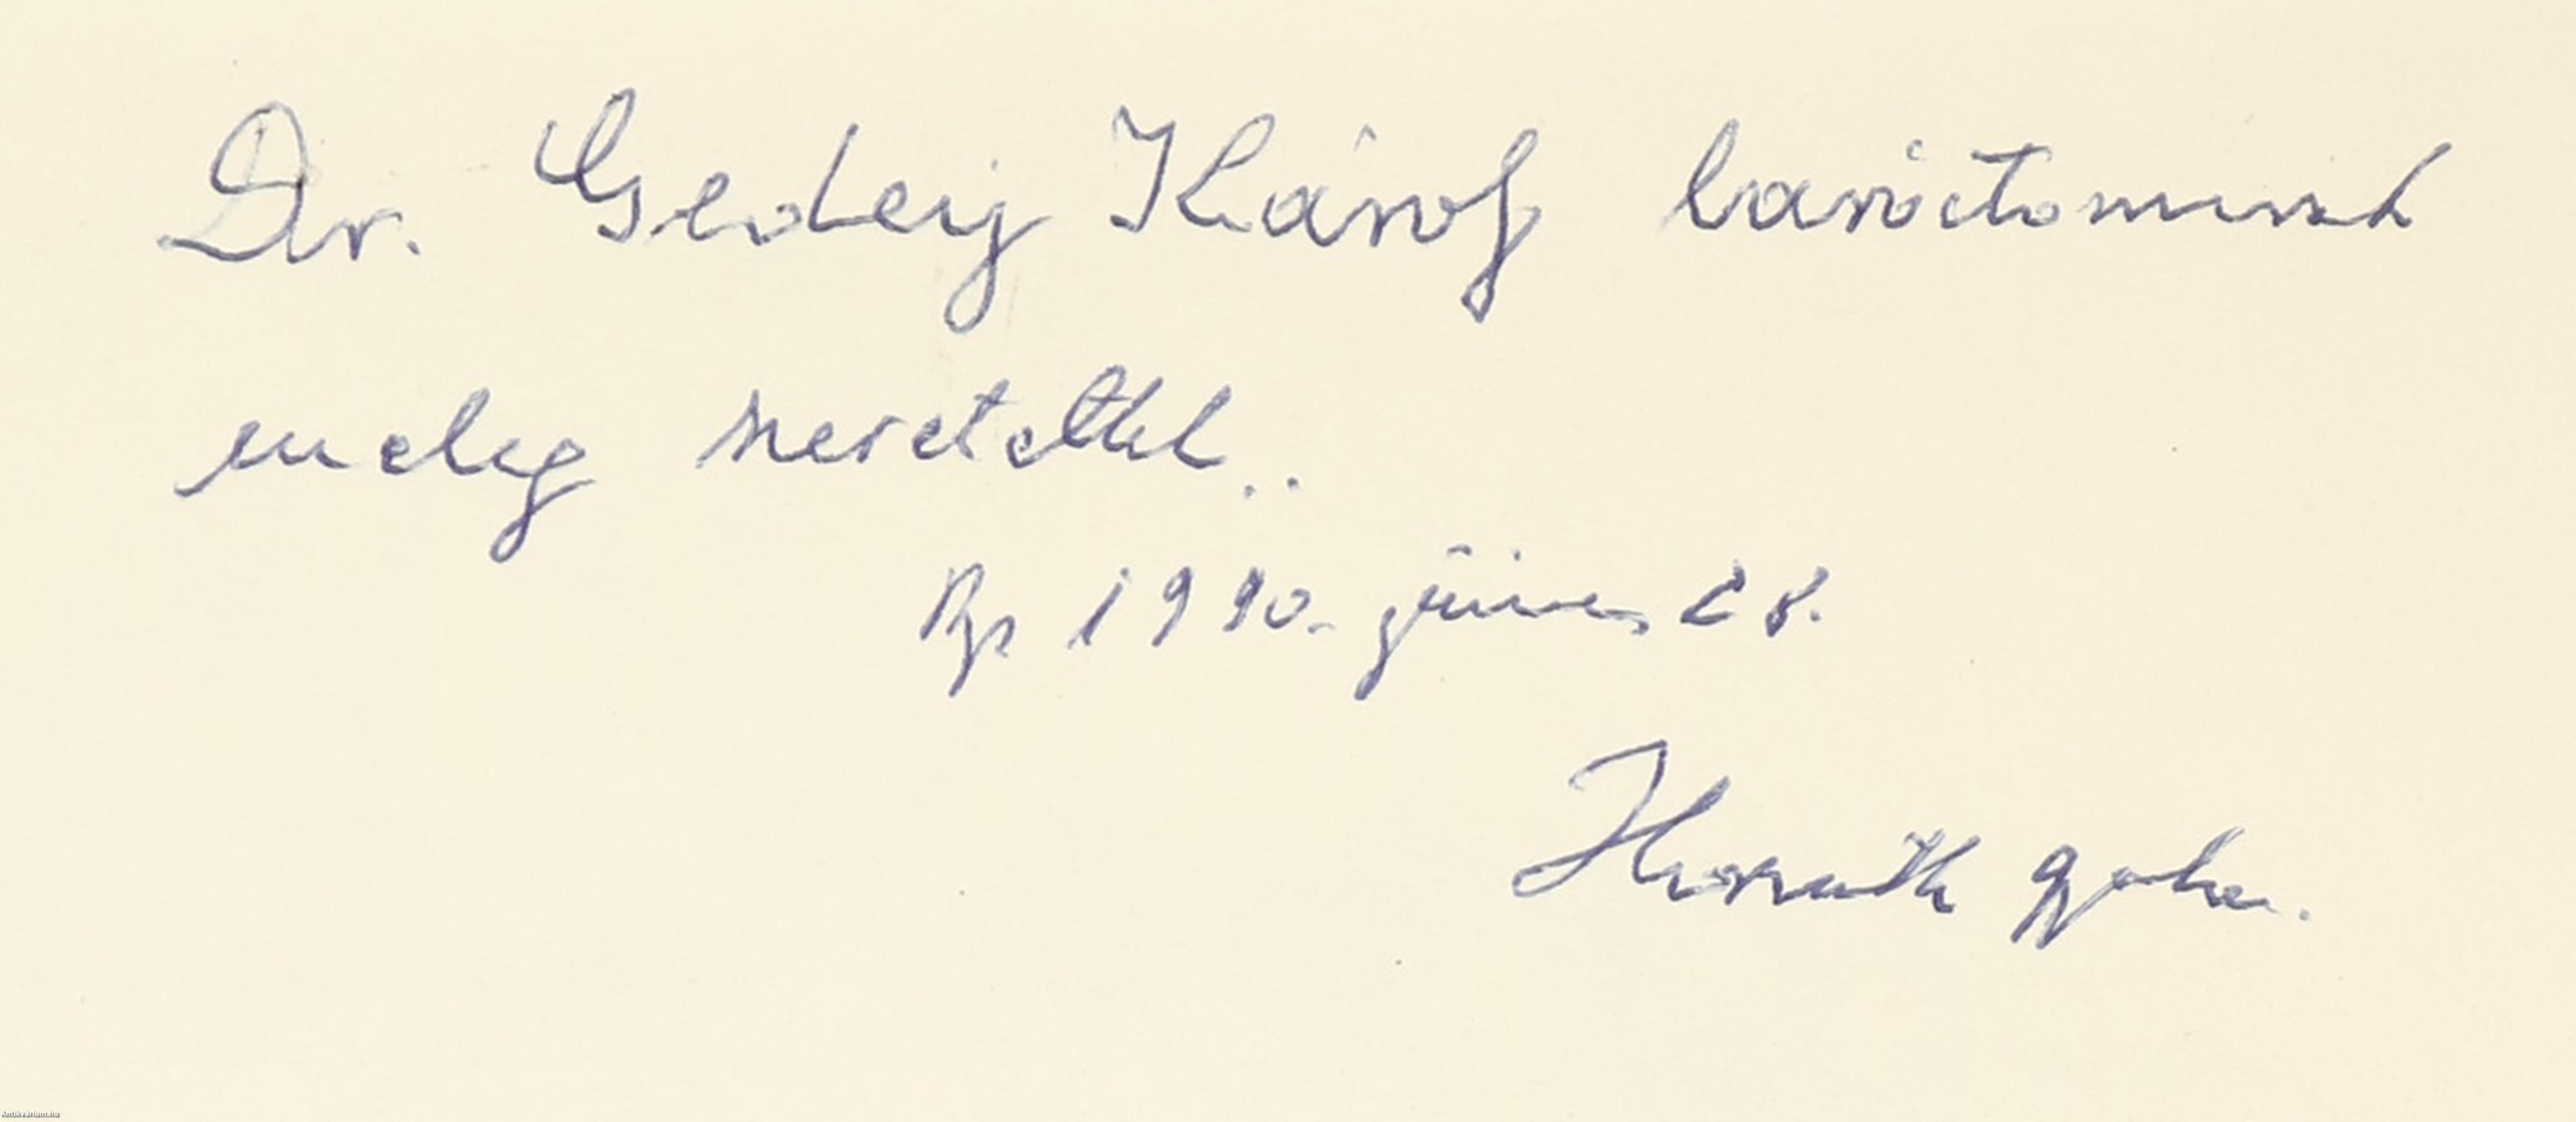 Dr. Gedey Károly barátomnak
meleg szeretettel..
Bp 1990. június 28.
Horváth Gyula.
Antikvarium.hu